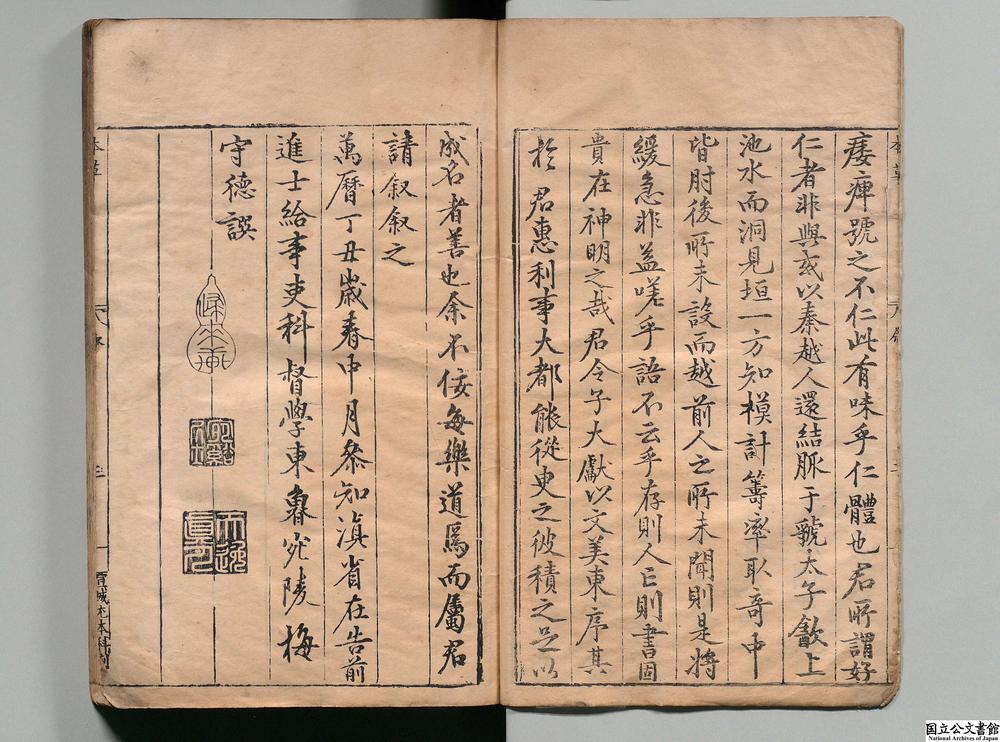 痿痺號之不仁此有味乎仁體也君所謂好
仁者非與或以秦越人還結脈于虢太子飲上
池水而洞見垣一方知模計籌率取奇中
皆肘後所未設而越前人之所未聞則是將
緩急非益嗟乎語不云乎存則人亡則書固
貴在神明之哉君令子大獻以文美東序其
於 君惠利事大都能從臾之彼積之足以
成名者善也余不佞每樂道焉而屬君
請叙叙之
萬曆丁丑歲春中月叅知滇省在告前
進士給事吏科督學東魯宛陵梅
守德譔
本草
序
三
國立公文書館
National Archives of Japan